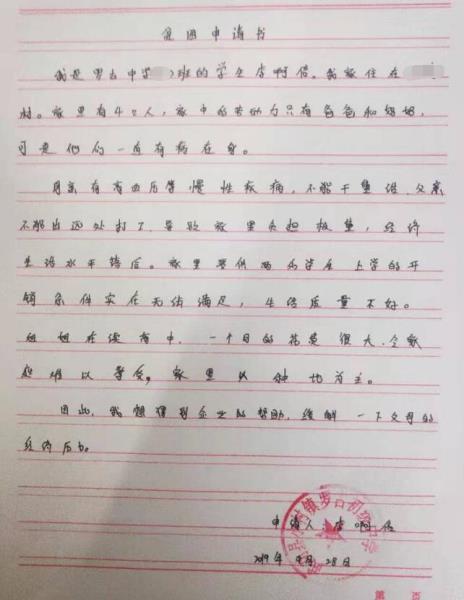 贫困申请书
我是罗古中学 班的学生李啊倍。我家住在
村。家里有4口人，家中的劳动力只有爸爸和妈妈，
可是他们一直有病在身。
母亲有高血压等慢性疾病，不能干重活，父亲
不能出远处打工，导致家里负担极重，经济
生活水平错后。家里要供两名学生上学的开
销条件实在无法满足，生活质量不好。
姐姐在读高中，一个月的花费很大，全家
起难以享受，家里以种地为主。
因此，我想得到企业的赞助，缓解一下父母的
经济压力。
申请人：李啊倍
2019年9月28日
镇罗古初级中学
第 页